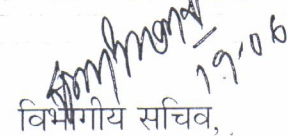 19.06
विभागीय सचिव,